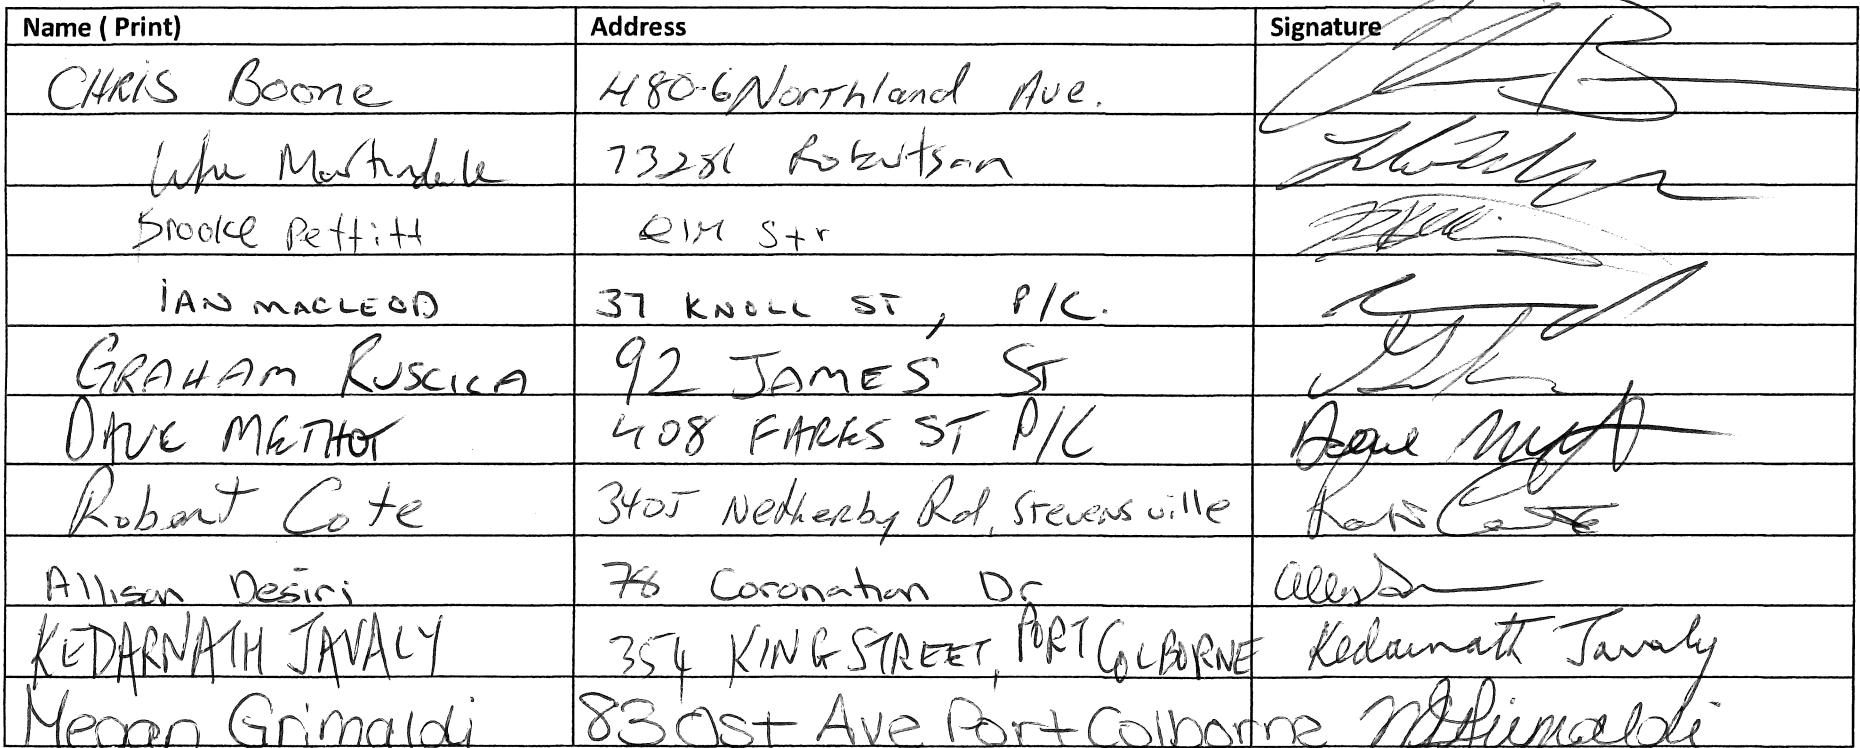 Name ( Print) Address Signature
CHRIS Boone 480-6 Northland Ave.
Luke Martindale 73281
Brooke Pettitt elm Str
IAN MACLEOD 37 KNOLL ST, P/C.
GRAHAM RUSCICA 92 JAMES ST
DAVE METHOT 408 FARES ST P/C
Robert Cote 3405 Netherby Rd, Stevensville
Allison Desiri 78 Coronation Dr
KEDARNATH JAVALY 354 KING STREET, PORT COLBORNE Kedarnath Javaly
Megan Grimaldi 83 Ost Ave Port Colborne MGrimaldi